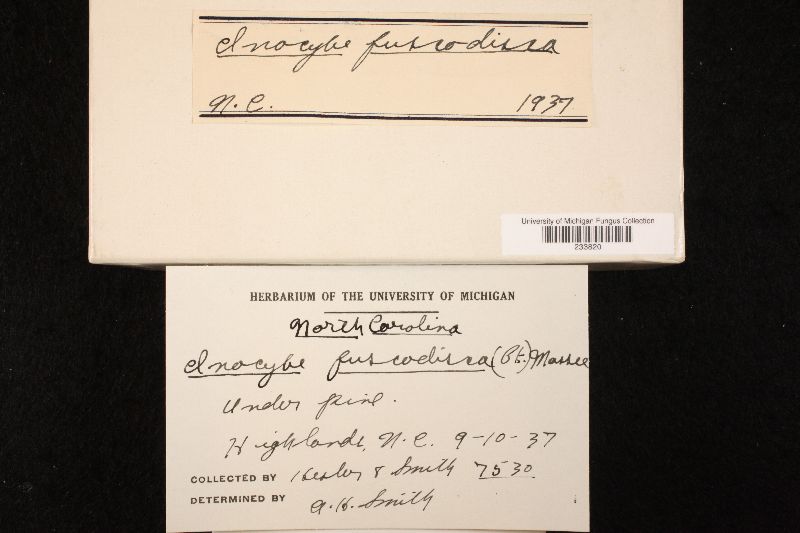 Inocybe fuscodisca
N.C. 1937
University of Michigan Fungus Collection
233820
HERBARIUM OF THE UNIVERSITY OF MICHIGAN
North Carolina
Inocybe fuscodisca (Pk.) Massee
Under pine.
Highlands, N.C. 9-10-37
COLLECTED BY Hesler & Smith 7530
DETERMINED BY A.H. Smith